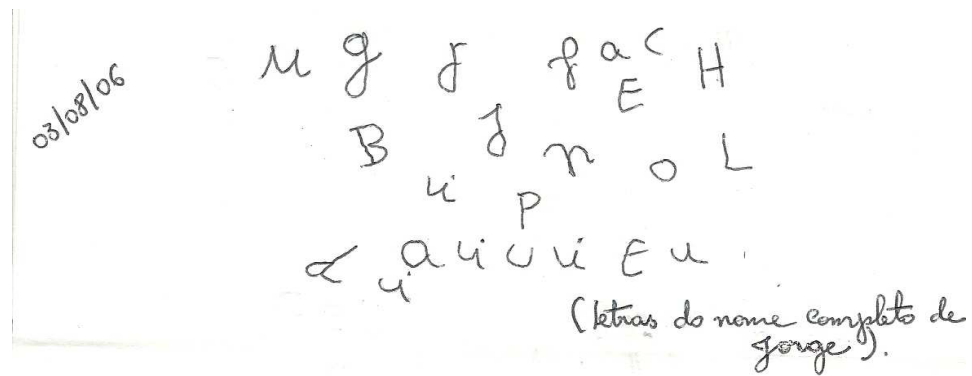 03/08/06
M g J f a C H
E
B J n o L
u P
α u a u U u E u
(letras do nome completo de
Jorge).